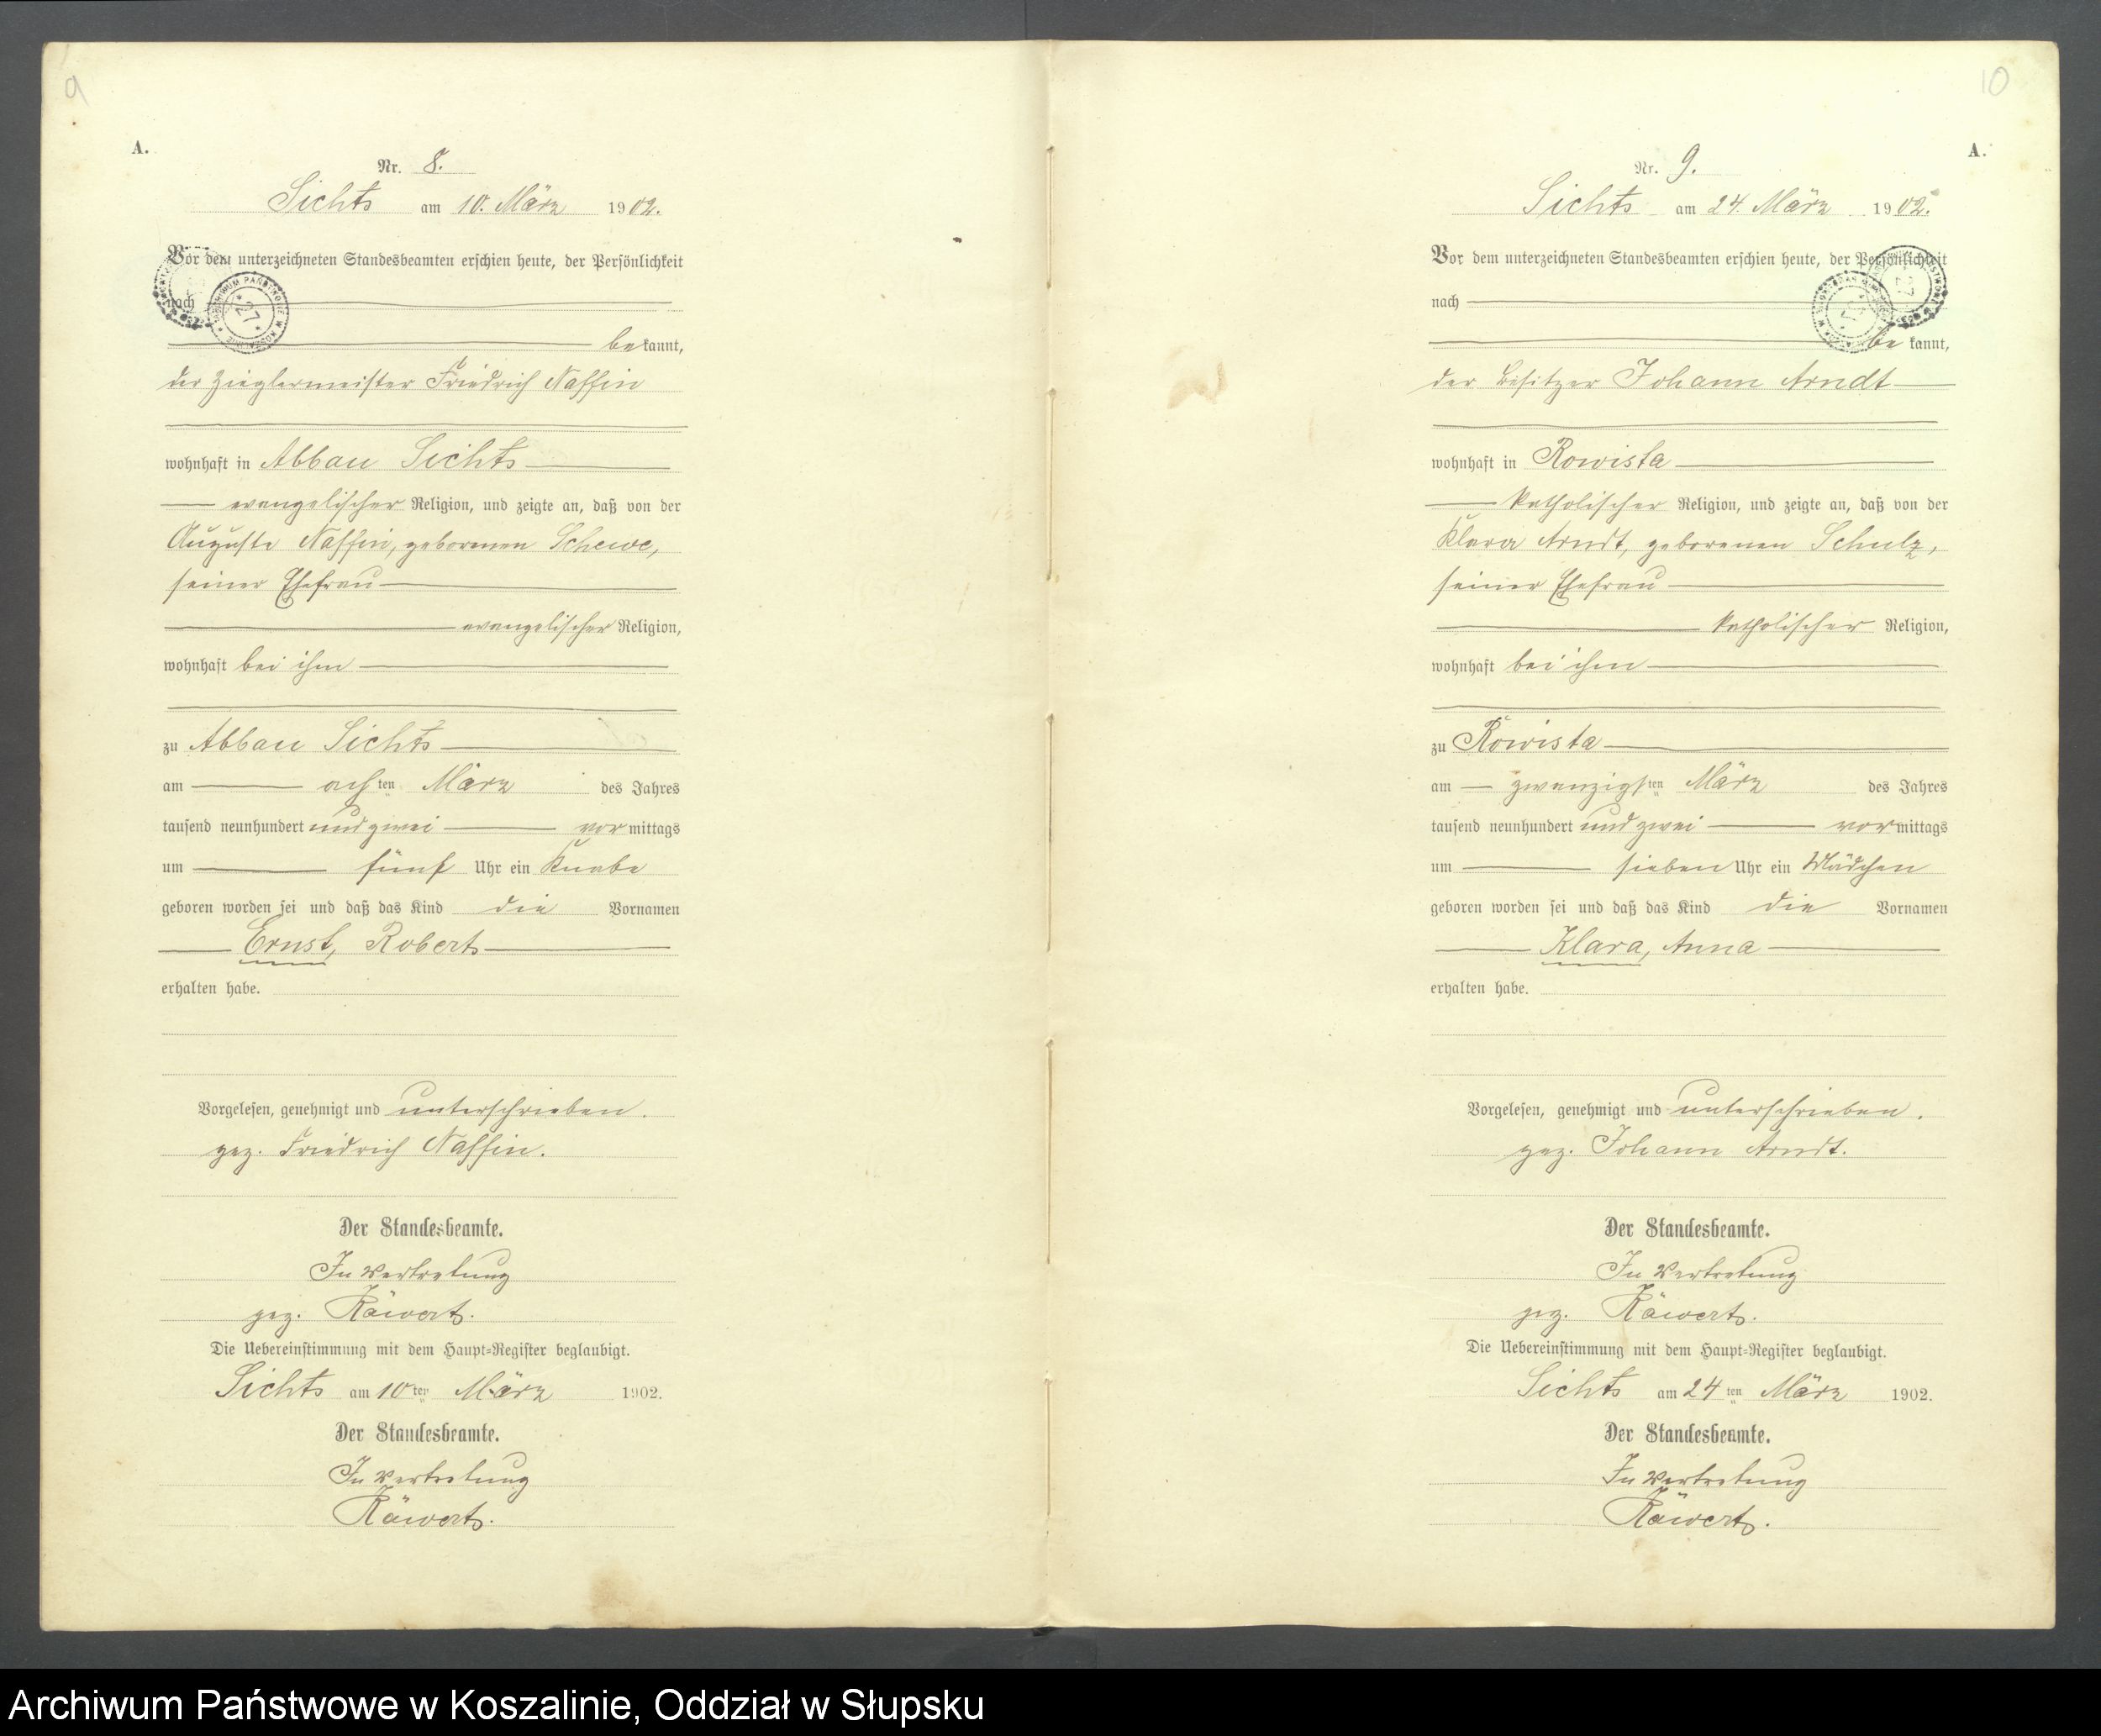 9
A.
Nr. 8.
Sichts am 10. März 1902.
Vor dem unterzeichneten Standesbeamten erschien heute, der Persönlichkeit
nach
bekannt,
der Zieglermeister Friedrich Naffin
wohnhaft in Abbau Sichts
evangelischer Religion, und zeigte an, daß von der
Auguste Naffin, geborenen Schewe,
seiner Ehefrau
evangelischer Religion,
wohnhaft bei ihm
zu Abbau Sichts
am achten März des Jahres
tausend neunhundert und zwei vormittags
um fünf Uhr ein Knabe
geboren worden sei und daß das Kind die Vornamen
Ernst, Robert
erhalten habe.
Vorgelesen, genehmigt und unterschrieben.
gez. Friedrich Naffin.
Der Standesbeamte.
In Vertretung
gez. Käwert.
Die Uebereinstimmung mit dem Haupt-Register beglaubigt.
Sichts am 10ten März 1902.
Der Standesbeamte.
In Vertretung
Käwert.
10
A.
Nr. 9.
Sichts am 24. März 1902.
Vor dem unterzeichneten Standesbeamten erschien heute, der Persönlichkeit
nach
bekannt,
der Besitzer Johann Arndt
wohnhaft in Kowista
katholischer Religion, und zeigte an, daß von der
Klara Arndt, geborenen Schulz,
seiner Ehefrau
katholischer Religion,
wohnhaft bei ihm
zu Kowista
am zwanzigsten März des Jahres
tausend neunhundert und zwei vormittags
um sieben Uhr ein Mädchen
geboren worden sei und daß das Kind die Vornamen
Klara, Anna
erhalten habe.
Vorgelesen, genehmigt und unterschrieben.
gez. Johann Arndt.
Der Standesbeamte.
In Vertretung
gez. Käwert.
Die Uebereinstimmung mit dem Haupt-Register beglaubigt.
Sichts am 24ten März 1902.
Der Standesbeamte.
In Vertretung
Käwert.
Archiwum Państwowe w Koszalinie, Oddział w Słupsku